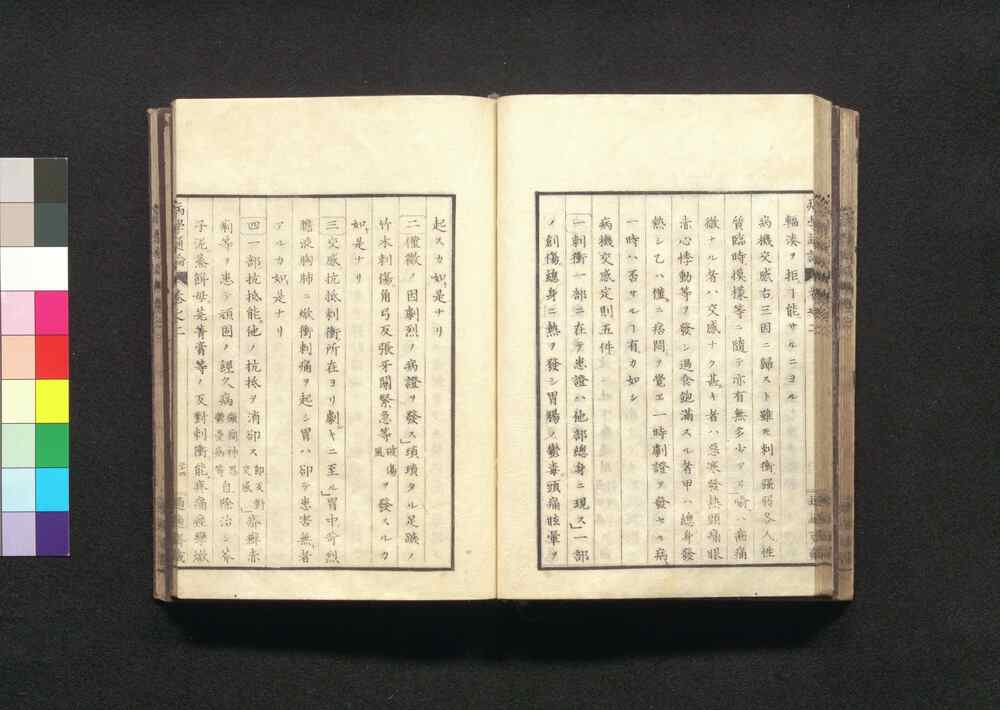 輻湊ヲ拒ヿ能サルニヨル
病機交感右三因ニ歸スト雖𪜈刺衝強弱各人性
質臨時摸様等ニ隨テ亦有無多少アリ喩ハ痛
微ナル者ハ交感ナク甚キ者ハ惡寒發熱頭痛眼
赤心悸動等ヲ發シ過食飽滿スル者甲ハ總身發
熱シ乙ハ僅ニ痞悶ヲ覺ヱ一時劇證ヲ發セル病
一時ハ否サルヿ有カ如シ
病機交感定則五件
一刺衝一部ニ在テ患證ハ他部總身ニ現ス一部
ノ創傷總身ニ熱ヲ發シ胃腸ノ鬱毒頭痛眩暈ヲ
起スカ如是ナリ
二僅微ノ因劇烈ノ病證ヲ發ス瑣瑣タル足蹠ノ
竹木刺傷角弓反張牙關緊急等破傷風ヲ發スルカ
如是ナリ
三交感抗抵刺衝所在ヨリ劇キニ至ル胃中苛烈
膽液胸肺ニ焮衝刺痛ヲ起シ胃ハ却テ患害無者
アルカ如是ナリ
四一部抗抵能他ノ抗抵ヲ消卻ス卽反對交感
痢等ヲ患テ頑固ノ經久病自除治シ芥
子泥蒸餅母芫菁膏等ノ反對刺衝能疼痛痙攣
病學通論 巻之二